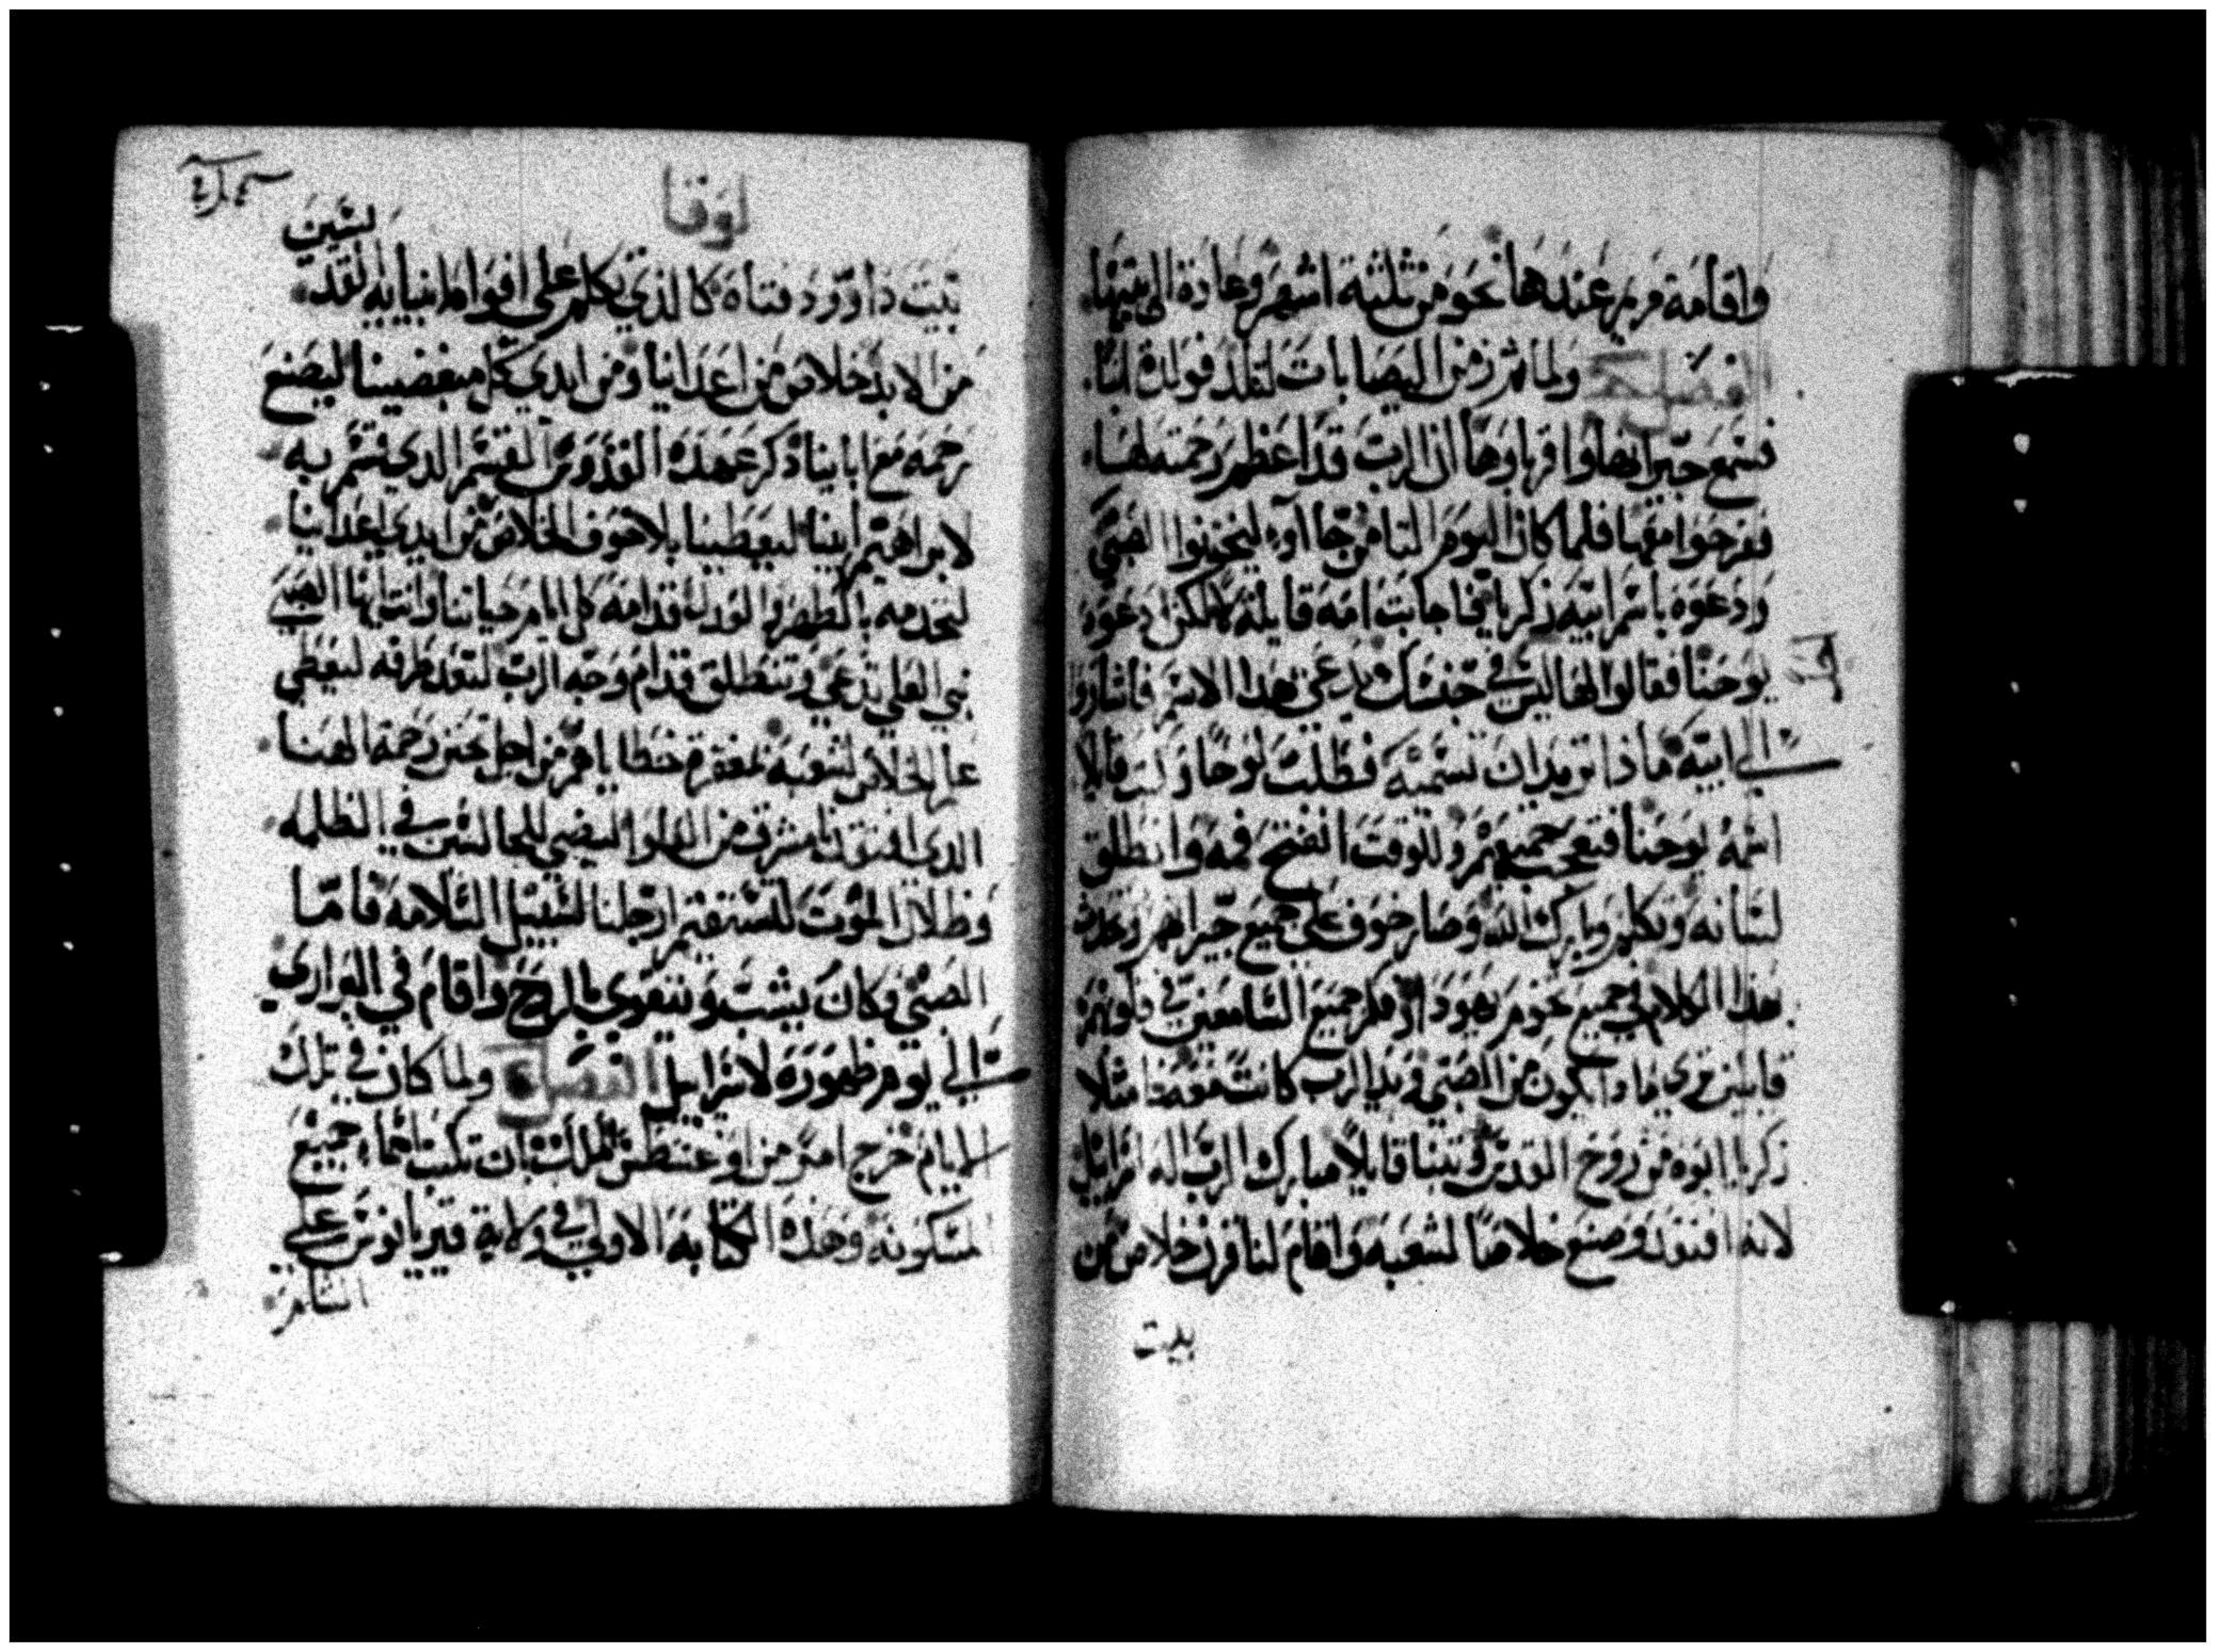 واقامة مريم عندها نحو من ثلثة اشهر وعادة الى بيتها
الفصل ولما تم زمن اليصابات لتلد فولدة ابنا
فسمع جيرانها واقرباوها ان الرب قد اعظم رحمته لها
ففرحوا معها فلما كان اليوم الثامن جاآوا ليختنوا الصبي
ودعوه باسم ابيه زكريا فاجابت امه قايلة لا لكن ادعوه
يوحنا فقالوا لها ليس في جنسك يدعى هذا الاسم فاشاروا
الي ابيه ماذا تريد ان تسميه فطلب لوحا وكتب قايلا
اسمه يوحنا فتعجب جميعهم وللوقت انفتح فمه وانطلق
لسانه وتكلم وبارك الله وصار خوف على جميع جيرانهم وتحدث
بهذا الكلام في جميع تخوم يهودا وفكر جميع السامعين في قلوبهم
قايلين ترى ماذا يكون من الصبي ويد الرب كانت معه
زكريا ابوه من روح القدس وتنبا قايلا مبارك الرب اله اسراييل
لانه افتقد وصنع خلاصا لشعبه واقام لنا قرن خلاص من
بيت
لوقا
بيت داوود فتاه كالذي تكلم على افواه انبيايه
من الابد خلاص من اعداينا ومن ايدي كل مبغضينا ليصنع
رحمه مع اباينا وذكر عهده القدوس القسم الذي قسم به
لابراهيم ابينا ليعطينا بلا خوف الخلاص من ايدي اعداينا
لنخدمه بالطهر والعدل قدامه كل ايام حياتنا وانت ايها الصبي
نبي العلي تدعى وتنطلق قدام وجه الرب لتعد طرقه ليعطي
علم الخلاص لشعبه لمغفرة خطاياهم من اجل تحنن رحمة الهنا
الذي افتقدنا مشرق من العلو ليضي للجالسين في الظلمه
وظلال الموت لتستقيم ارجلنا لسبيل السلامه فاما
الصبي وكان يشب ويتقوى بالروح واقام في البراري
الي يوم ظهوره لاسراييل الفصل ولما كان في تلك
الايام خرج امر من اوغسطس الملك بان تكتب اسماء جميع
المسكونه وهذه الكتابة الاولى في ولاية قيرينوس على
الشام